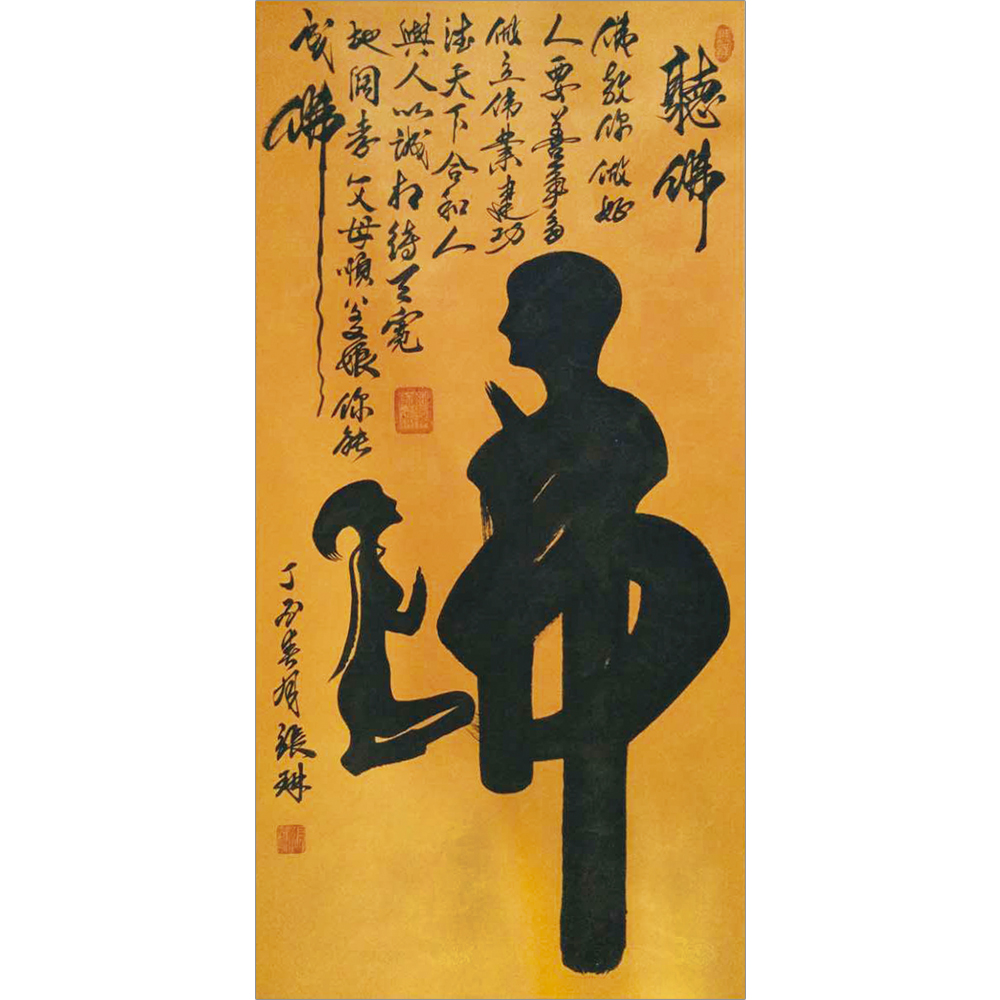 聽佛
佛教你做好
人要善事多
做立偉業建功
德天下合和人
與人以誠相待天寬
地闊孝父母順爹娘你能
成佛
丁酉春月張琳